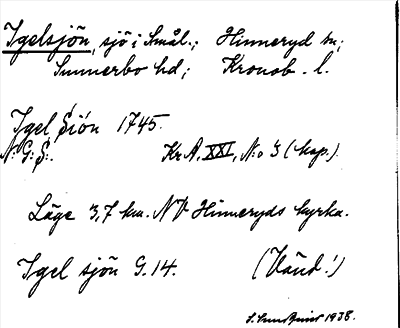 Igelsjön, sjö i Smål.; Hinneryd sn;
Sunnerbo hd; Kronob. l.
Igel Siön 1745.
N: G: S:. Kr A, XXI, N:o 3 (kop.).
Läge 3,7 km. NV Hinneryds kyrka.
Igel sjön G. 14. (Vänd!)
1938.